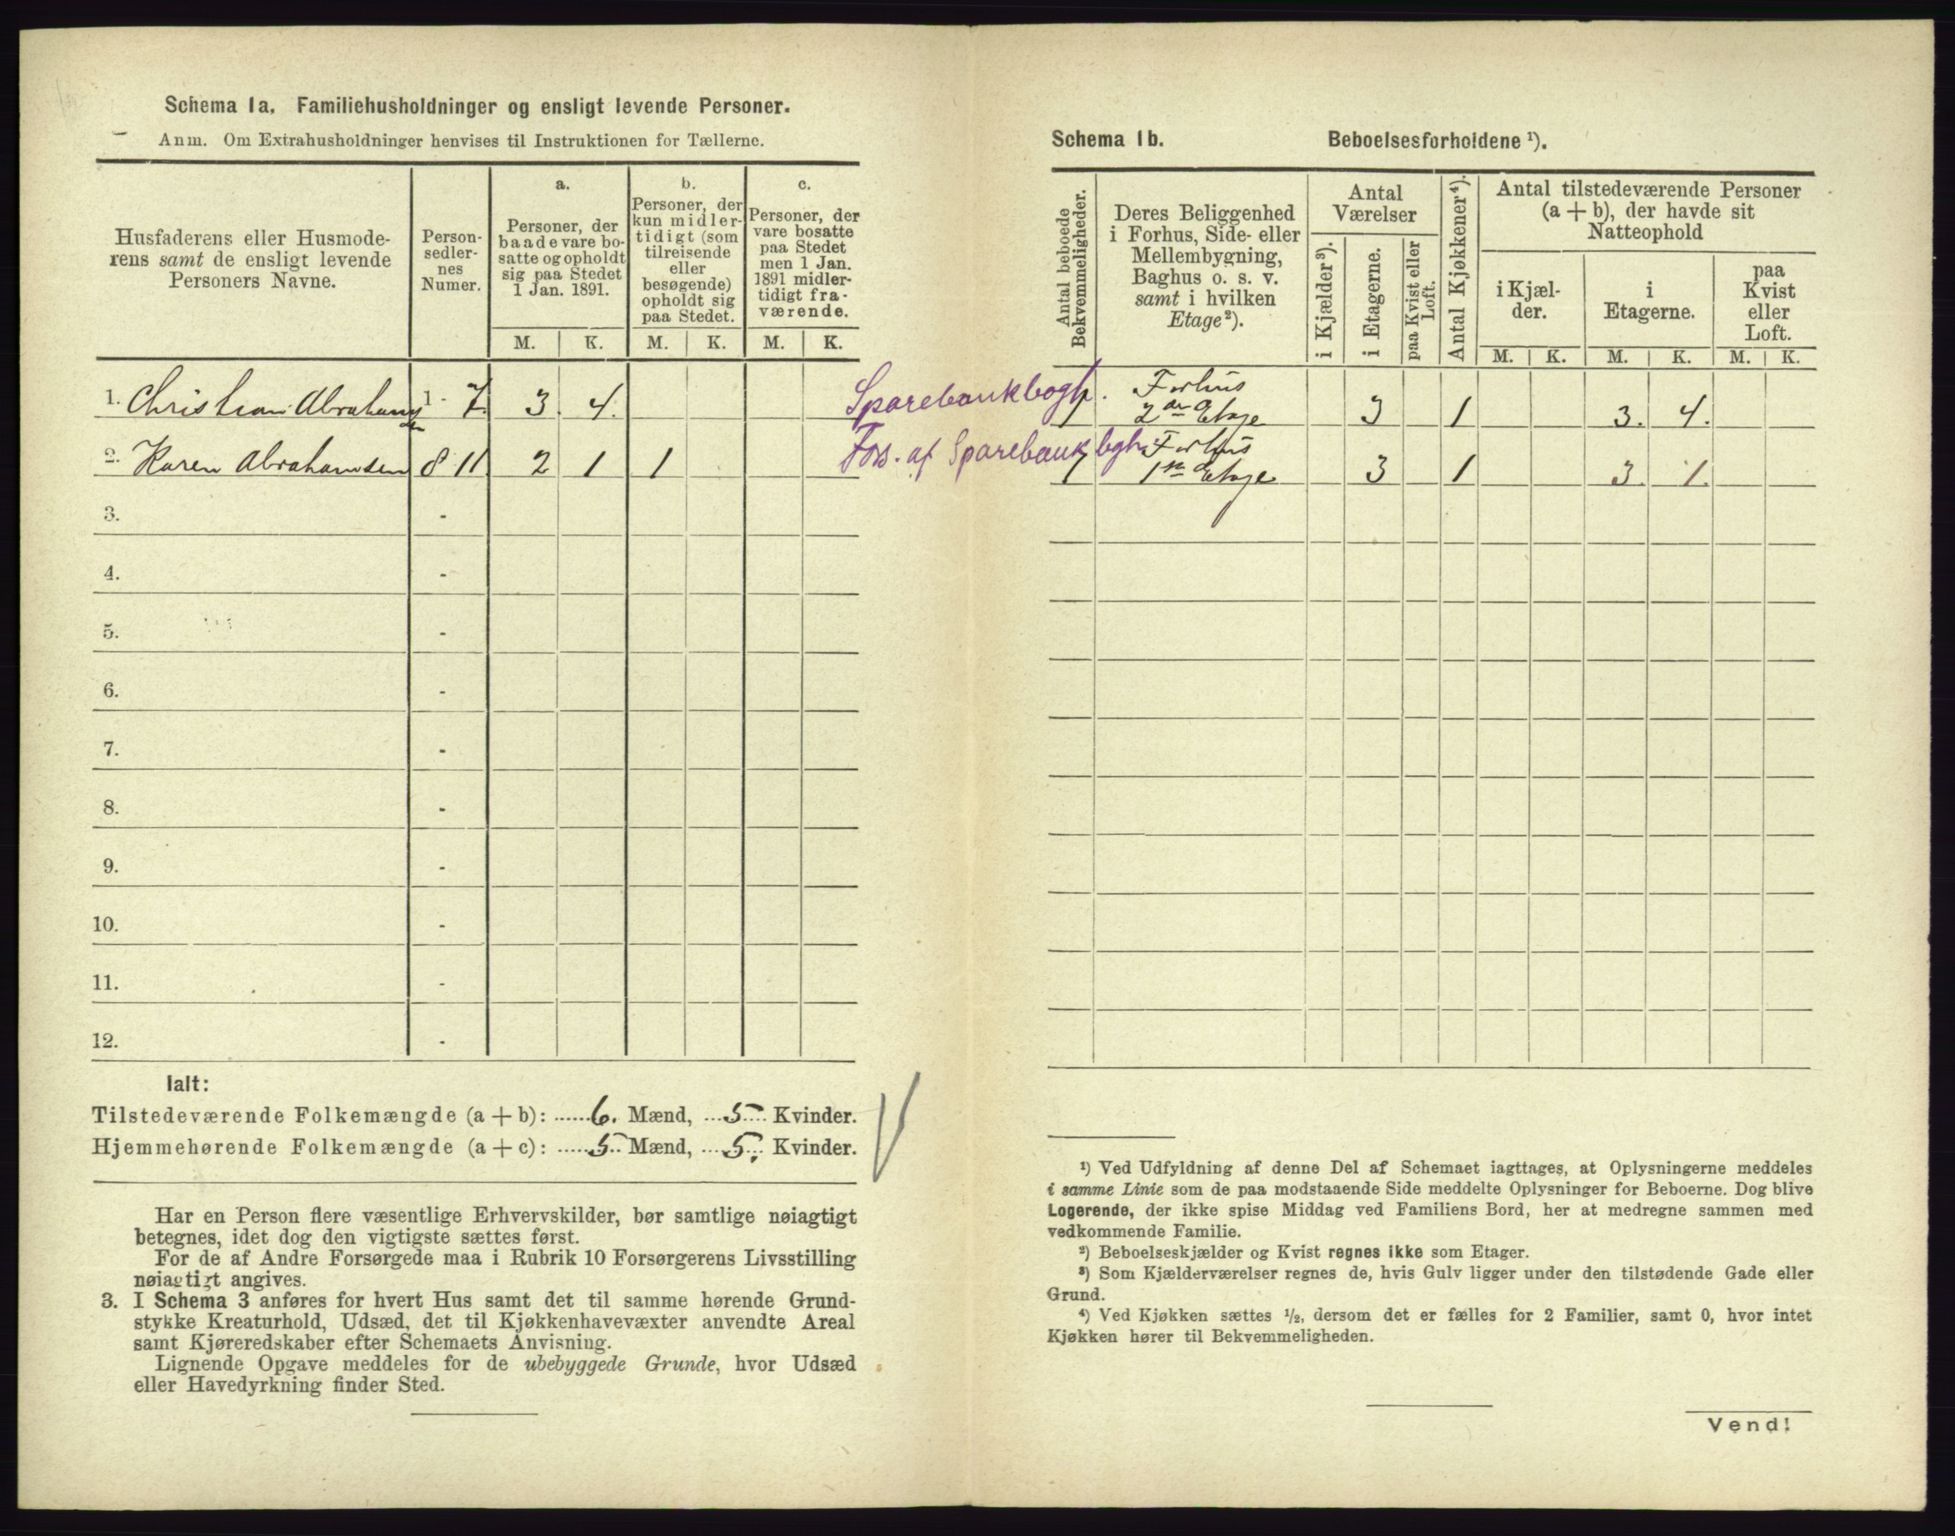 Schema 1a. Familiehusholdninger og ensligt levende Personer.
Anm. Om Extrahusholdninger henvises til Instruktionen for Tællerne.
Husfaderens eller Husmode-
rens samt de ensligt levende
Personers Navne.
Person-
sedler-
nes
Numer.
a.
Personer, der
baade vare bo-
satte og opholdt
sig paa Stedet
1 Jan. 1891.
b.
Personer, der
kun midler-
tidigt (som
tilreisende
eller
besøgende)
opholdt sig
paa Stedet.
c.
Personer, der
vare bosatte
paa Stedet
men 1 Jan.
1891 midler-
tidigt fra-
værende.
M. K. M. K. M. K.
1. Christian Abrahamsen 1 - 7. 3. 4.
2. Karen Abrahamsen 8 11 2 1 1
3. -
4. -
5. -
6. -
7. -
8. -
9. -
10. -
11. -
12. -
Ialt:
Tilstedeværende Folkemængde (a + b): 6. Mænd, 5 Kvinder.
Hjemmehørende Folkemængde (a + c): 5 Mænd, 5. Kvinder.
Har en Person flere væsentlige Erhvervskilder, bør samtlige nøiagtigt
betegnes, idet dog den vigtigste sættes først.
For de af Andre Forsørgede maa i Rubrik 10 Forsørgerens Livsstilling
nøiagtigt angives.
3. I Schema 3 anføres for hvert Hus samt det til samme hørende Grund-
stykke Kreaturhold, Udsæd, det til Kjøkkenhavevæxter anvendte Areal
samt Kjøreredskaber efter Schemaets Anvisning.
Lignende Opgave meddeles for de ubebyggede Grunde, hvor Udsæd
eller Havedyrkning finder Sted.
Schema 1b. Beboelsesforholdene ¹).
Antal beboede
Bekvemmeligheder.
Deres Beliggenhed
i Forhus, Side- eller
Mellembygning,
Baghus o. s. v.
samt i hvilken
Etage²).
Antal
Værelser
i Kjælder³).
i Etagerne.
paa Kvist eller
Loft.
Antal Kjøkkener⁴).
Antal tilstedeværende Personer
(a + b), der havde sit
Natteophold
i Kjæl-
der.
i
Etagerne.
paa
Kvist
eller
Loft.
M. K. M. K. M. K.
Sparebankbogh. 1 Forhus
2den Etage 3 1 3. 4.
Fors. af Sparebankbgh. 1 Forhus
1ste Etage 3 1 3. 1.
¹) Ved Udfyldning af denne Del af Schemaet iagttages, at Oplysningerne meddeles
i samme Linie som de paa modstaaende Side meddelte Oplysninger for Beboerne. Dog blive
Logerende, der ikke spise Middag ved Familiens Bord, her at medregne sammen med
vedkommende Familie.
²) Beboelseskjælder og Kvist regnes ikke som Etager.
³) Som Kjælderværelser regnes de, hvis Gulv ligger under den tilstødende Gade eller
Grund.
⁴) Ved Kjøkken sættes ½, dersom det er fælles for 2 Familier, samt 0, hvor intet
Kjøkken hører til Bekvemmeligheden.
Vend!